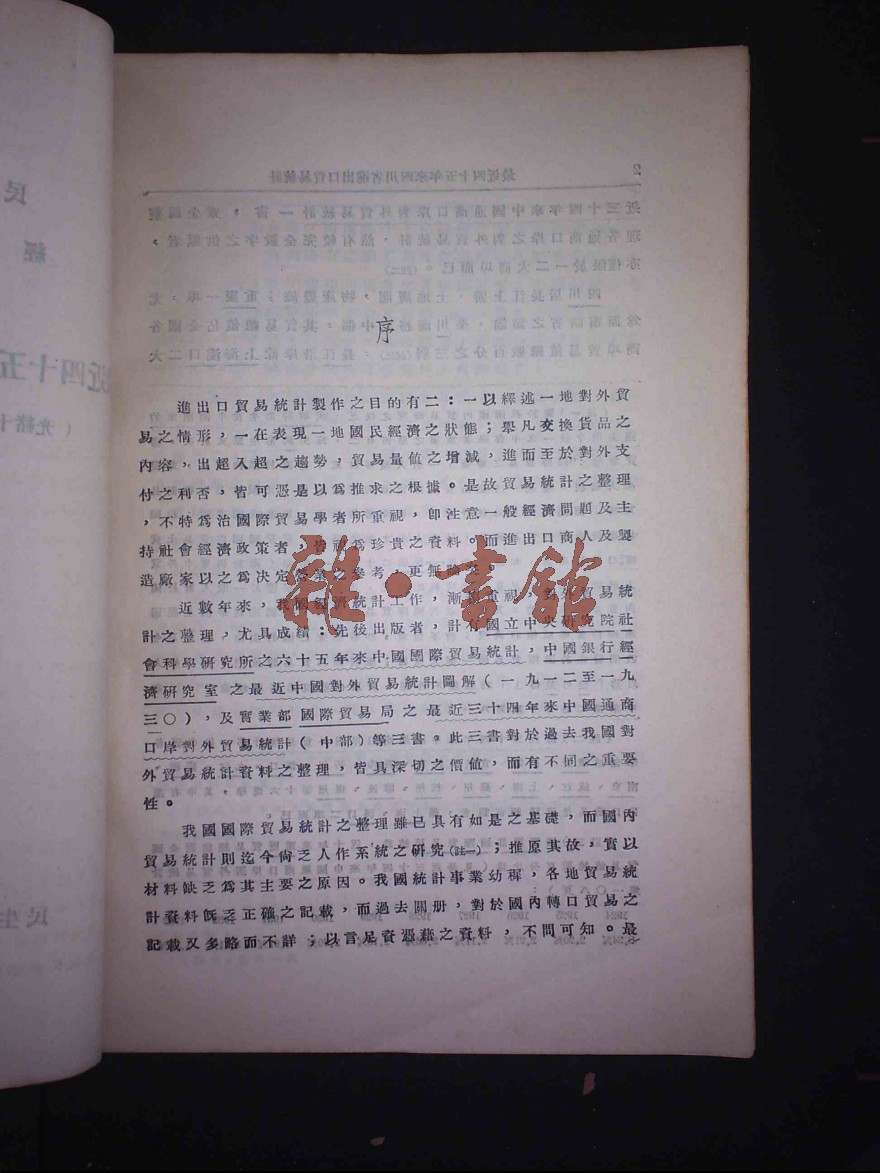 序
進出口貿易統計製作之目的有二：一以釋述一地對外貿
易之情形，一在表現一地國民經濟之狀態；舉凡交換貨品之
內容，出超入超之趨勢，貿易量値之增減，進而至於對外支
付之利否，皆可憑是以爲推求之根據。是故貿易統計之整理
，不特爲治國際貿易學者所重視，卽注意一般經濟問題及主
持社會經濟政策者，皆視爲珍貴之資料。而進出口商人及製
造廠家以之爲决定營業之參考，更無論矣。
近數年來，我國經濟統計工作，漸見重視，對外貿易統
計之整理，尤具成績：先後出版者，計有國立中央研究院社
會科學研究所之六十五年來中國國際貿易統計，中國銀行經
濟研究室之最近中國對外貿易統計圖解（一九一二至一九
三〇），及實業部國際貿易局之最近三十四年來中國通商
口岸對外貿易統計（中部）等三書。此三書對於過去我國對
外貿易統計資料之整理，皆具深切之價値，而有不同之重要
性。
我國國際貿易統計之整理雖已具有如是之基礎，而國內
貿易統計則迄今尙乏人作系統之研究（註一）；推原其故，實以
材料缺乏爲其主要之原因。我國統計事業幼稺，各地貿易統
計資料旣乏正確之記載，而過去關册，對於國內轉口貿易之
記載又多略而不詳；以言足資憑藉之資料，不問可知。最
雜·書館